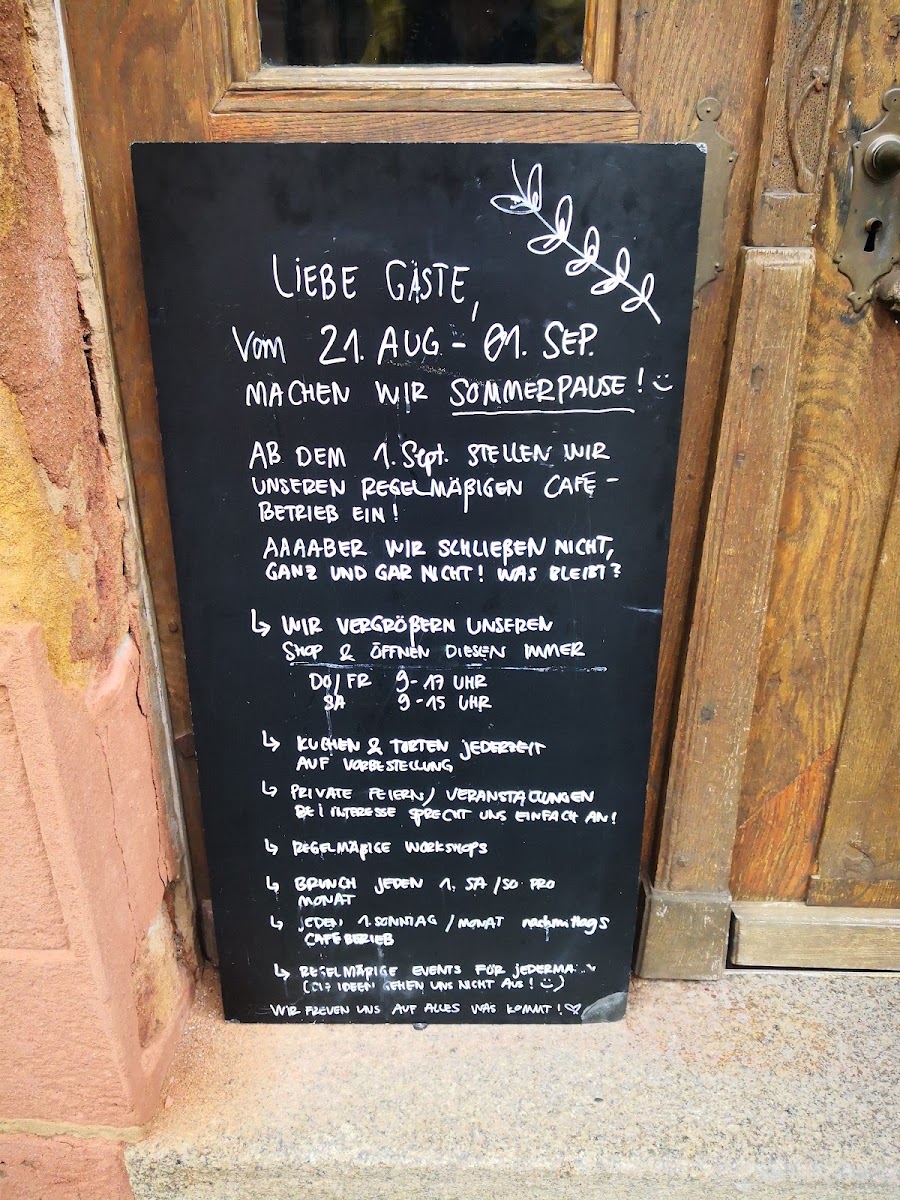 LIEBE GÄSTE,
VOM 21. AUG - 01. SEP.
MACHEN WIR SOMMERPAUSE! :)
AB DEM 1. Sept. STELLEN WIR
UNSEREN REGELMÄßIGEN CAFÉ-
BETRIEB EIN!
AAAABER WIR SCHLIEßEN NICHT,
GANZ UND GAR NICHT! WAS BLEIBT?
↳ WIR VERGRÖßERN UNSEREN
SHOP & ÖFFNEN DIESEN IMMER
DO/FR 9-17 UHR
SA 9-15 UHR
↳ KUCHEN & TORTEN JEDERZEIT
AUF VORBESTELLUNG
↳ PRIVATE FEIERN/VERANSTALTUNGEN
BEI INTERESSE SPRECHT UNS EINFACH AN!
↳ REGELMÄßIGE WORKSHOPS
↳ BRUNCH JEDEN 1. SA/SO PRO
MONAT
↳ JEDEN 1. SONNTAG/MONAT nachmittags
CAFÉBETRIEB
↳ REGELMÄßIGE EVENTS FÜR
IDEEN GEHEN UNS NICHT AUS! :)
WIR FREUEN UNS AUF ALLES WAS KOMMT! ♡